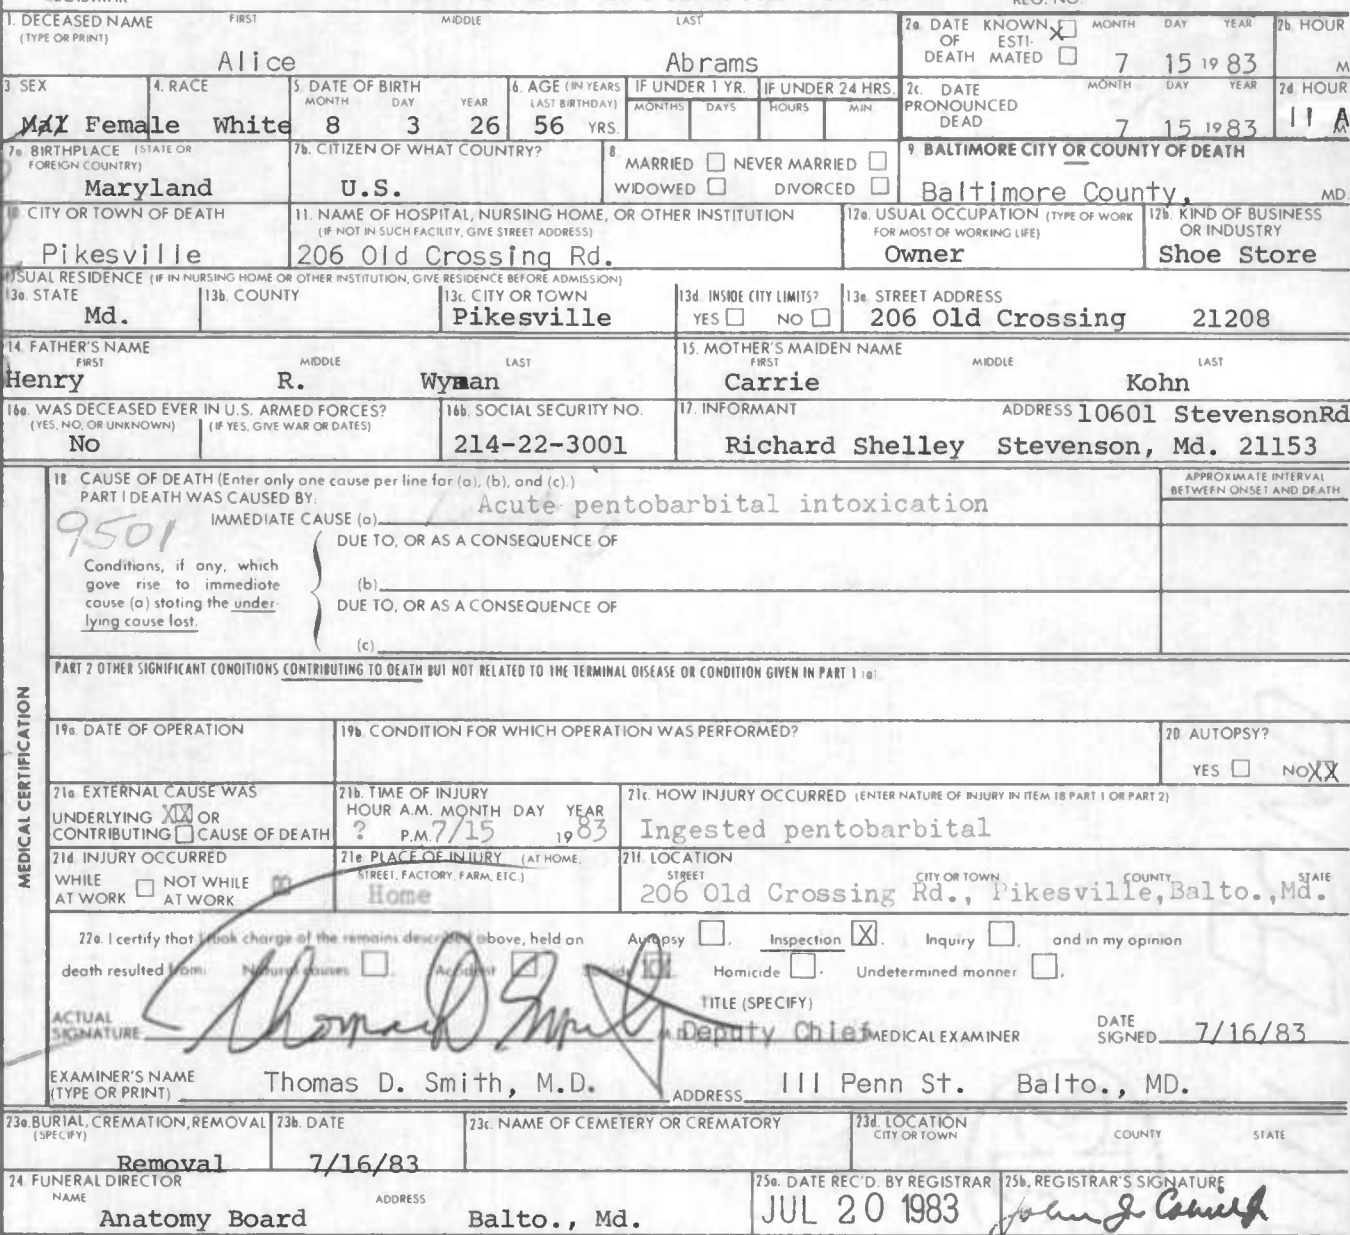 1. DECEASED NAME FIRST MIDDLE LAST
(TYPE OR PRINT)
Alice Abrams
2a. DATE KNOWN X MONTH DAY YEAR
OF ESTI-
DEATH MATED 7 15 19 83
2b. HOUR
M
3. SEX 4. RACE 5. DATE OF BIRTH 6. AGE (IN YEARS IF UNDER 1 YR. IF UNDER 24 HRS.
MONTH DAY YEAR LAST BIRTHDAY) MONTHS DAYS HOURS MIN
Female White 8 3 26 56 YRS.
2c. DATE MONTH DAY YEAR 2d. HOUR
PRONOUNCED
DEAD 7 15 1983 11 A
7a. BIRTHPLACE (STATE OR
FOREIGN COUNTRY)
Maryland
7b. CITIZEN OF WHAT COUNTRY?
U.S.
8. MARRIED NEVER MARRIED
WIDOWED DIVORCED
9. BALTIMORE CITY OR COUNTY OF DEATH
Baltimore County, MD.
10. CITY OR TOWN OF DEATH
Pikesville
11. NAME OF HOSPITAL, NURSING HOME, OR OTHER INSTITUTION
(IF NOT IN SUCH FACILITY, GIVE STREET ADDRESS)
206 Old Crossing Rd.
12a. USUAL OCCUPATION (TYPE OF WORK
FOR MOST OF WORKING LIFE)
Owner
12b. KIND OF BUSINESS
OR INDUSTRY
Shoe Store
USUAL RESIDENCE (IF IN NURSING HOME OR OTHER INSTITUTION, GIVE RESIDENCE BEFORE ADMISSION)
13a. STATE 13b. COUNTY 13c. CITY OR TOWN 13d. INSIDE CITY LIMITS? 13e. STREET ADDRESS
Md. Pikesville YES NO 206 Old Crossing 21208
14. FATHER'S NAME
FIRST MIDDLE LAST
Henry R. Wyman
15. MOTHER'S MAIDEN NAME
FIRST MIDDLE LAST
Carrie Kohn
16a. WAS DECEASED EVER IN U.S. ARMED FORCES?
(YES, NO, OR UNKNOWN) (IF YES, GIVE WAR OR DATES)
No
16b. SOCIAL SECURITY NO.
214-22-3001
17. INFORMANT ADDRESS 10601 StevensonRd
Richard Shelley Stevenson, Md. 21153
MEDICAL CERTIFICATION
18. CAUSE OF DEATH (Enter only one cause per line for (a), (b), and (c).)
PART I DEATH WAS CAUSED BY:
APPROXIMATE INTERVAL
BETWEEN ONSET AND DEATH
IMMEDIATE CAUSE (a) Acute pentobarbital intoxication
9501
DUE TO, OR AS A CONSEQUENCE OF
Conditions, if any, which
gave rise to immediate
cause (a) stating the under-
lying cause last.
(b)
DUE TO, OR AS A CONSEQUENCE OF
(c)
PART 2 OTHER SIGNIFICANT CONDITIONS CONTRIBUTING TO DEATH BUT NOT RELATED TO THE TERMINAL DISEASE OR CONDITION GIVEN IN PART 1 (a)
19a. DATE OF OPERATION 19b. CONDITION FOR WHICH OPERATION WAS PERFORMED? 20. AUTOPSY?
YES NO XX
21a. EXTERNAL CAUSE WAS
UNDERLYING XX OR
CONTRIBUTING CAUSE OF DEATH
21b. TIME OF INJURY
HOUR A.M. MONTH DAY YEAR
? P.M. 7/15 19 83
21c. HOW INJURY OCCURRED (ENTER NATURE OF INJURY IN ITEM 18 PART 1 OR PART 2)
Ingested pentobarbital
21d. INJURY OCCURRED
WHILE NOT WHILE
AT WORK AT WORK
21e. PLACE OF INJURY (AT HOME,
STREET, FACTORY, FARM, ETC.)
Home
21f. LOCATION
STREET CITY OR TOWN COUNTY STATE
206 Old Crossing Rd., Pikesville, Balto., Md.
22a. I certify that I took charge of the remains described above, held an Autopsy , Inspection X , Inquiry , and in my opinion
death resulted from: Natural causes Accident Suicide XX Homicide , Undetermined manner ,
ACTUAL
SIGNATURE Thomas D Smith M.D.
TITLE (SPECIFY)
Deputy Chief MEDICAL EXAMINER
DATE
SIGNED 7/16/83
EXAMINER'S NAME
(TYPE OR PRINT) Thomas D. Smith, M.D. ADDRESS 111 Penn St. Balto., MD.
23a. BURIAL, CREMATION, REMOVAL 23b. DATE 23c. NAME OF CEMETERY OR CREMATORY 23d. LOCATION
(SPECIFY) CITY OR TOWN COUNTY STATE
Removal 7/16/83
24. FUNERAL DIRECTOR
NAME ADDRESS
Anatomy Board Balto., Md.
25a. DATE REC'D. BY REGISTRAR
JUL 20 1983
25b. REGISTRAR'S SIGNATURE
John J.